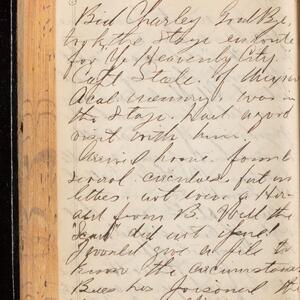 Bid Charley Good Bye,
took the Stage enroute
for Ye Heavenly City
Capt State. of
memory. was in
the Stage. Had a good
visit with him.
Arrived home. found
several circulars. but no
letters. not even a
from B. Well the
did not
I would give a file to
know the circumstance
has poisoned the